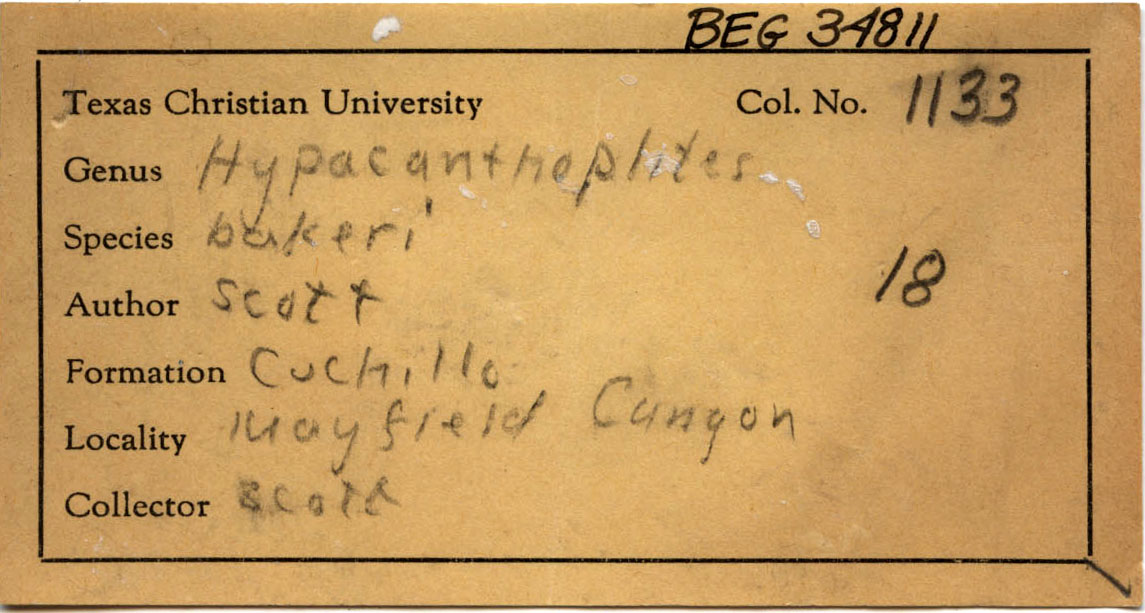 BEG 34811
Texas Christian University Col. No. 1133
Genus Hypacanthoplites
Species bakeri
18
Author Scott
Formation Cuchillo
Locality Mayfield Canyon
Collector Scott